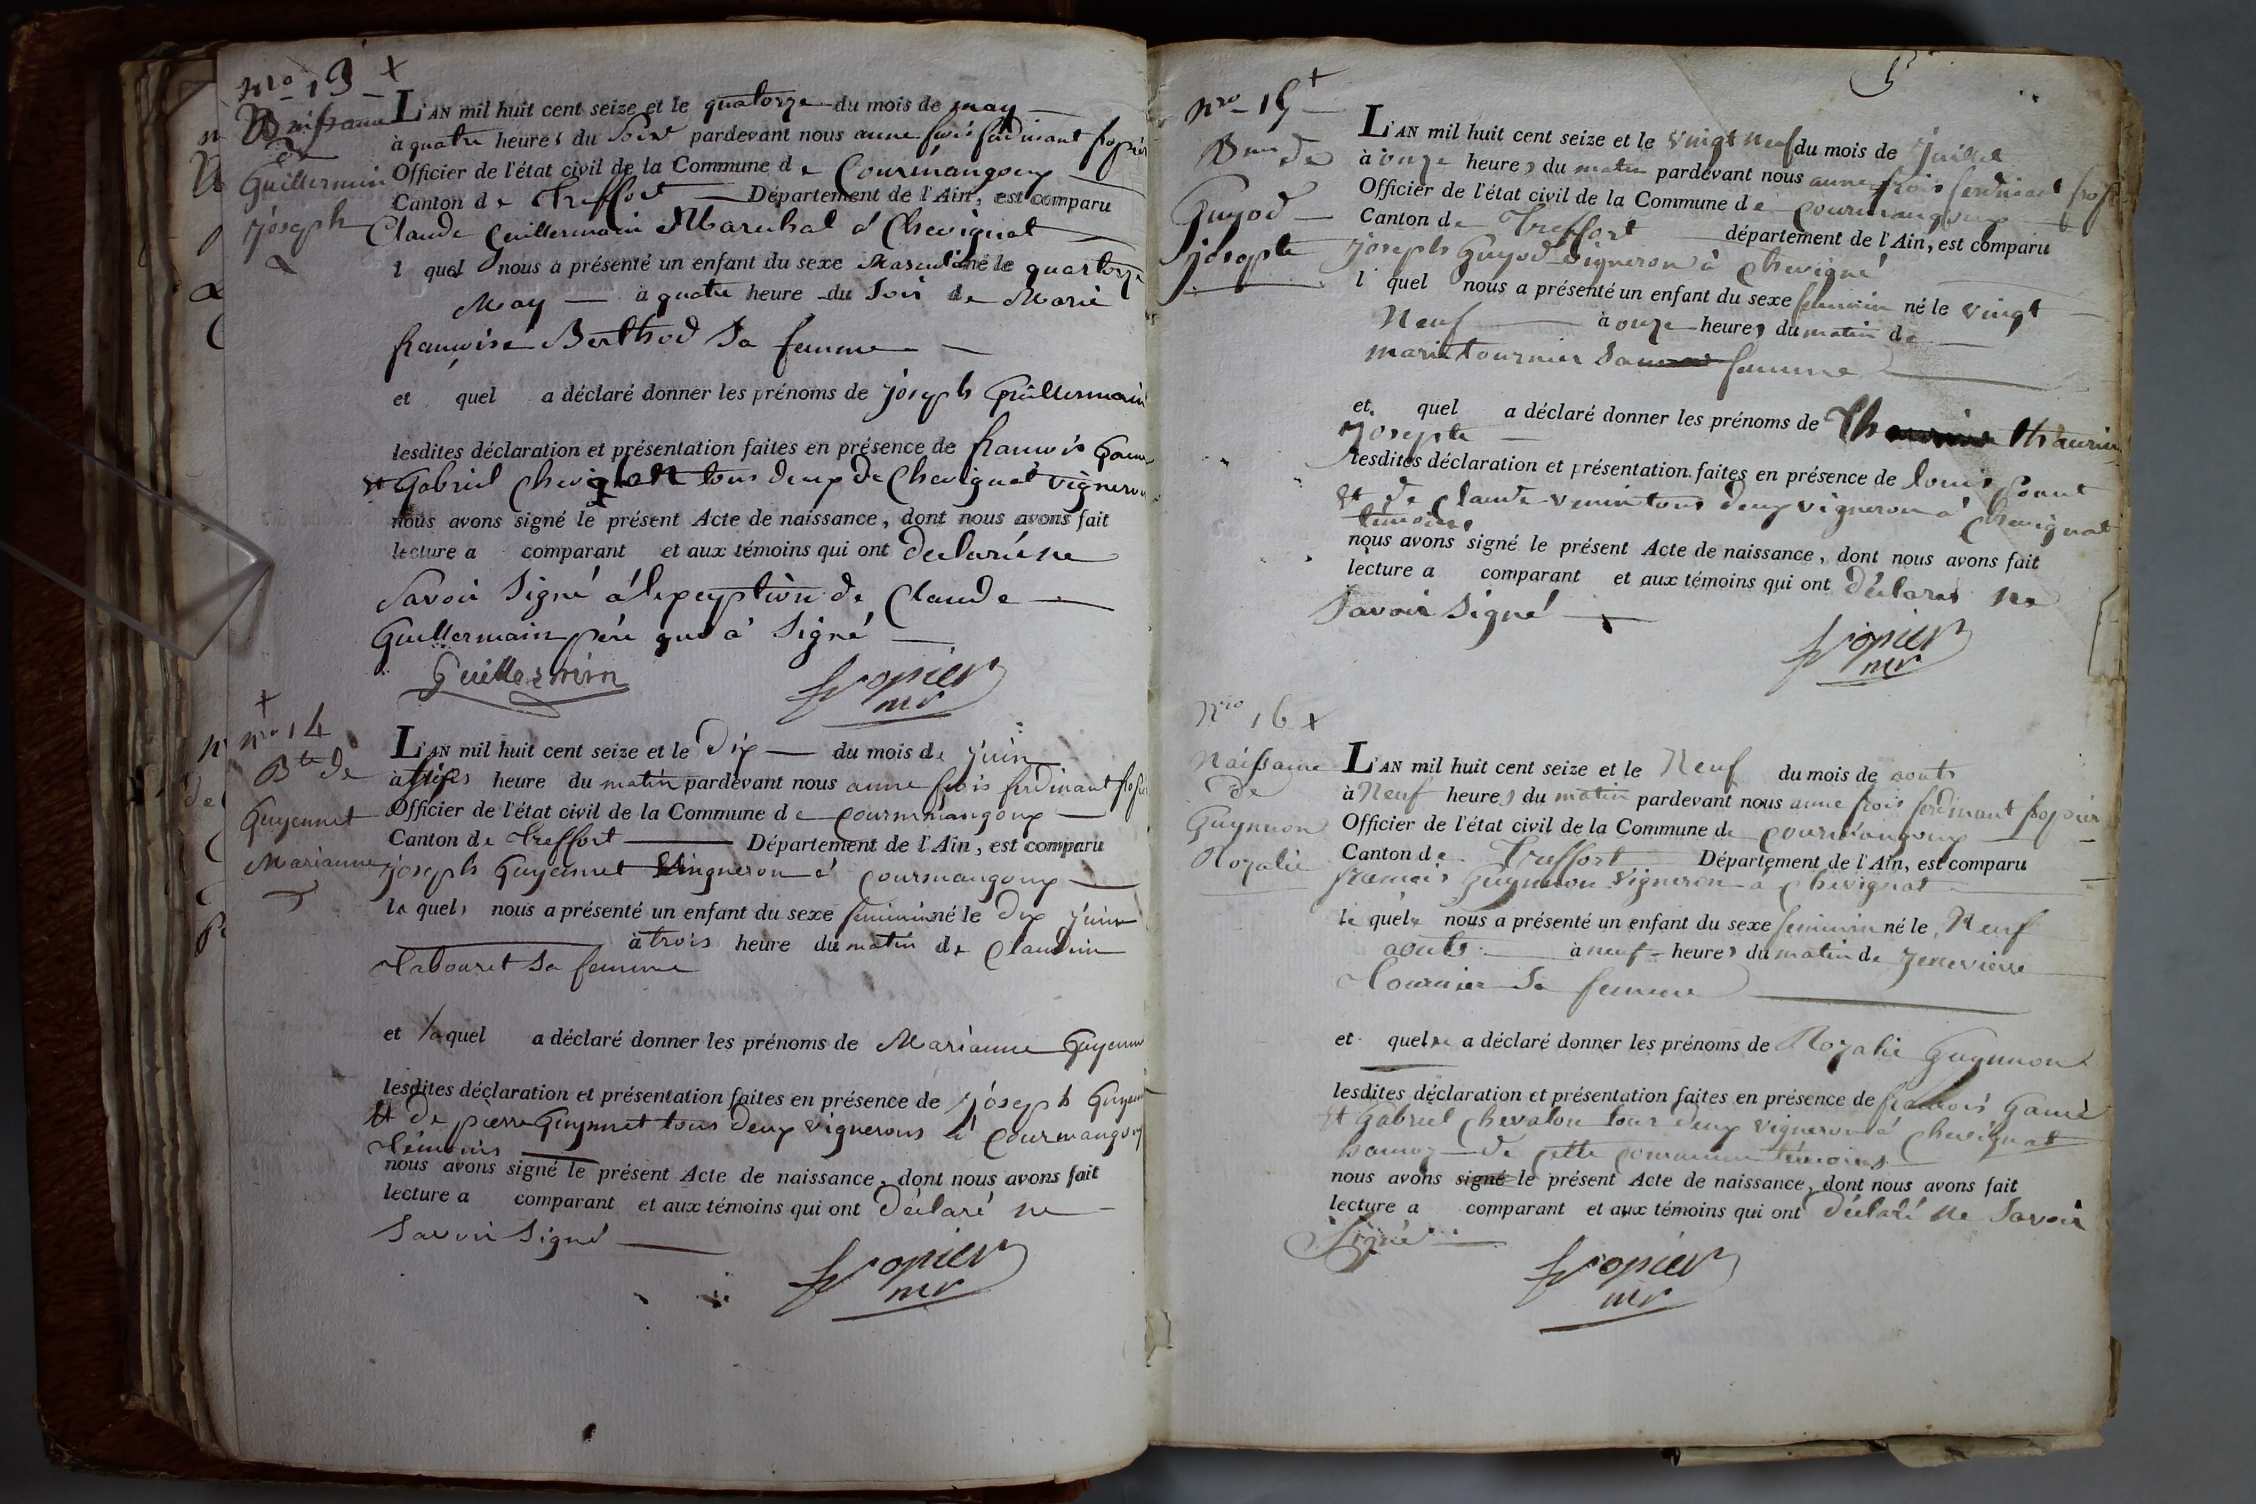 nro 13 x
Naissance
de
Guillermin
joseph
L'AN mil huit cent seize et le quatorze du mois de may
à quatre heures du Soir pardevant nous anne frois ferdinant fropier
Officier de l'état civil de la Commune de Courmangoux
Canton de Treffort Département de l'Ain, est comparu
Claude Guillermain Marechal à Chevignat
l quel nous a présenté un enfant du sexe Masculin né le quatorze
May à quatre heure du Soir de Marie
francoise Berthod Sa femme
et quel a déclaré donner les prénoms de joseph Guillermain
lesdites déclaration et présentation faites en présence de francois
et Gabriel tous deux de Chevignat vigneron
nous avons signé le présent Acte de naissance, dont nous avons fait
lecture a comparant et aux témoins qui ont declaré ne
Savoir Signé à lexeption de Claude
Guillermain père qui à Signé
Guillermin
fropier
mr
x
nro 14
Bte de
Guyennet
Marianne
L'AN mil huit cent seize et le Dix du mois de juin
à heure du matin pardevant nous anne frois ferdinant fropier
Officier de l'état civil de la Commune de Courmangoux
Canton de Treffort Département de l'Ain, est comparu
joseph Guyennet Vingneron à Courmangoux
le quel nous a présenté un enfant du sexe feminin né le Dix juin
à trois heure du matin de Claudine
Tabouret Sa femme
et la quel a déclaré donner les prénoms de Marianne Guyennet
lesdites déclaration et présentation faites en présence de joseph
et De pierre Guyennet tous deux vignerons à Courmangoux
Témoins
nous avons signé le présent Acte de naissance, dont nous avons fait
lecture a comparant et aux témoins qui ont Déclaré ne
Savoir Signé
fropier
mr
nro 15 +
de
Guyod
josepte
L'AN mil huit cent seize et le vingt neuf du mois de juillet
à onze heures du matin pardevant nous anne frois ferdinant
Officier de l'état civil de la Commune de Courmangoux
Canton de Treffort département de l'Ain, est comparu
joseph Guyod vigneron à Chevigné
l quel nous a présenté un enfant du sexe feminin né le vingt
Neuf à onze heures du matin de
marie tournier Sa femme
et quel a déclaré donner les prénoms de
josepte
lesdites déclaration et présentation faites en présence de louis
et de Claude tous deux vigneron à Chevignat
temoins
nous avons signé le présent Acte de naissance, dont nous avons fait
lecture a comparant et aux témoins qui ont déclares ne
Savoir Signé
fropier
mr
Nro 16 x
Naissance
de
Guynnon
Rozalie
L'AN mil huit cent seize et le Neuf du mois de aouts
à Neuf heures du matin pardevant nous anne frois ferdinant fropier
Officier de l'état civil de la Commune de Courmangoux
Canton de Treffort Département de l'Ain, est comparu
francois Guynnon vigneron à Chevignat
le quel nous a présenté un enfant du sexe feminin né le Neuf
aouts à neuf heures du matin de jenevieve
Tournier Sa femme
et quel a déclaré donner les prénoms de Rozalie Guynnon
lesdites déclaration et présentation faites en présence de francois
et Gabriel Chevalon tous deux vigneron à Chevignat
de cette commune témoins
nous avons signé le présent Acte de naissance, dont nous avons fait
lecture a comparant et aux témoins qui ont déclaré ne Savoir
Signé
fropier
mr